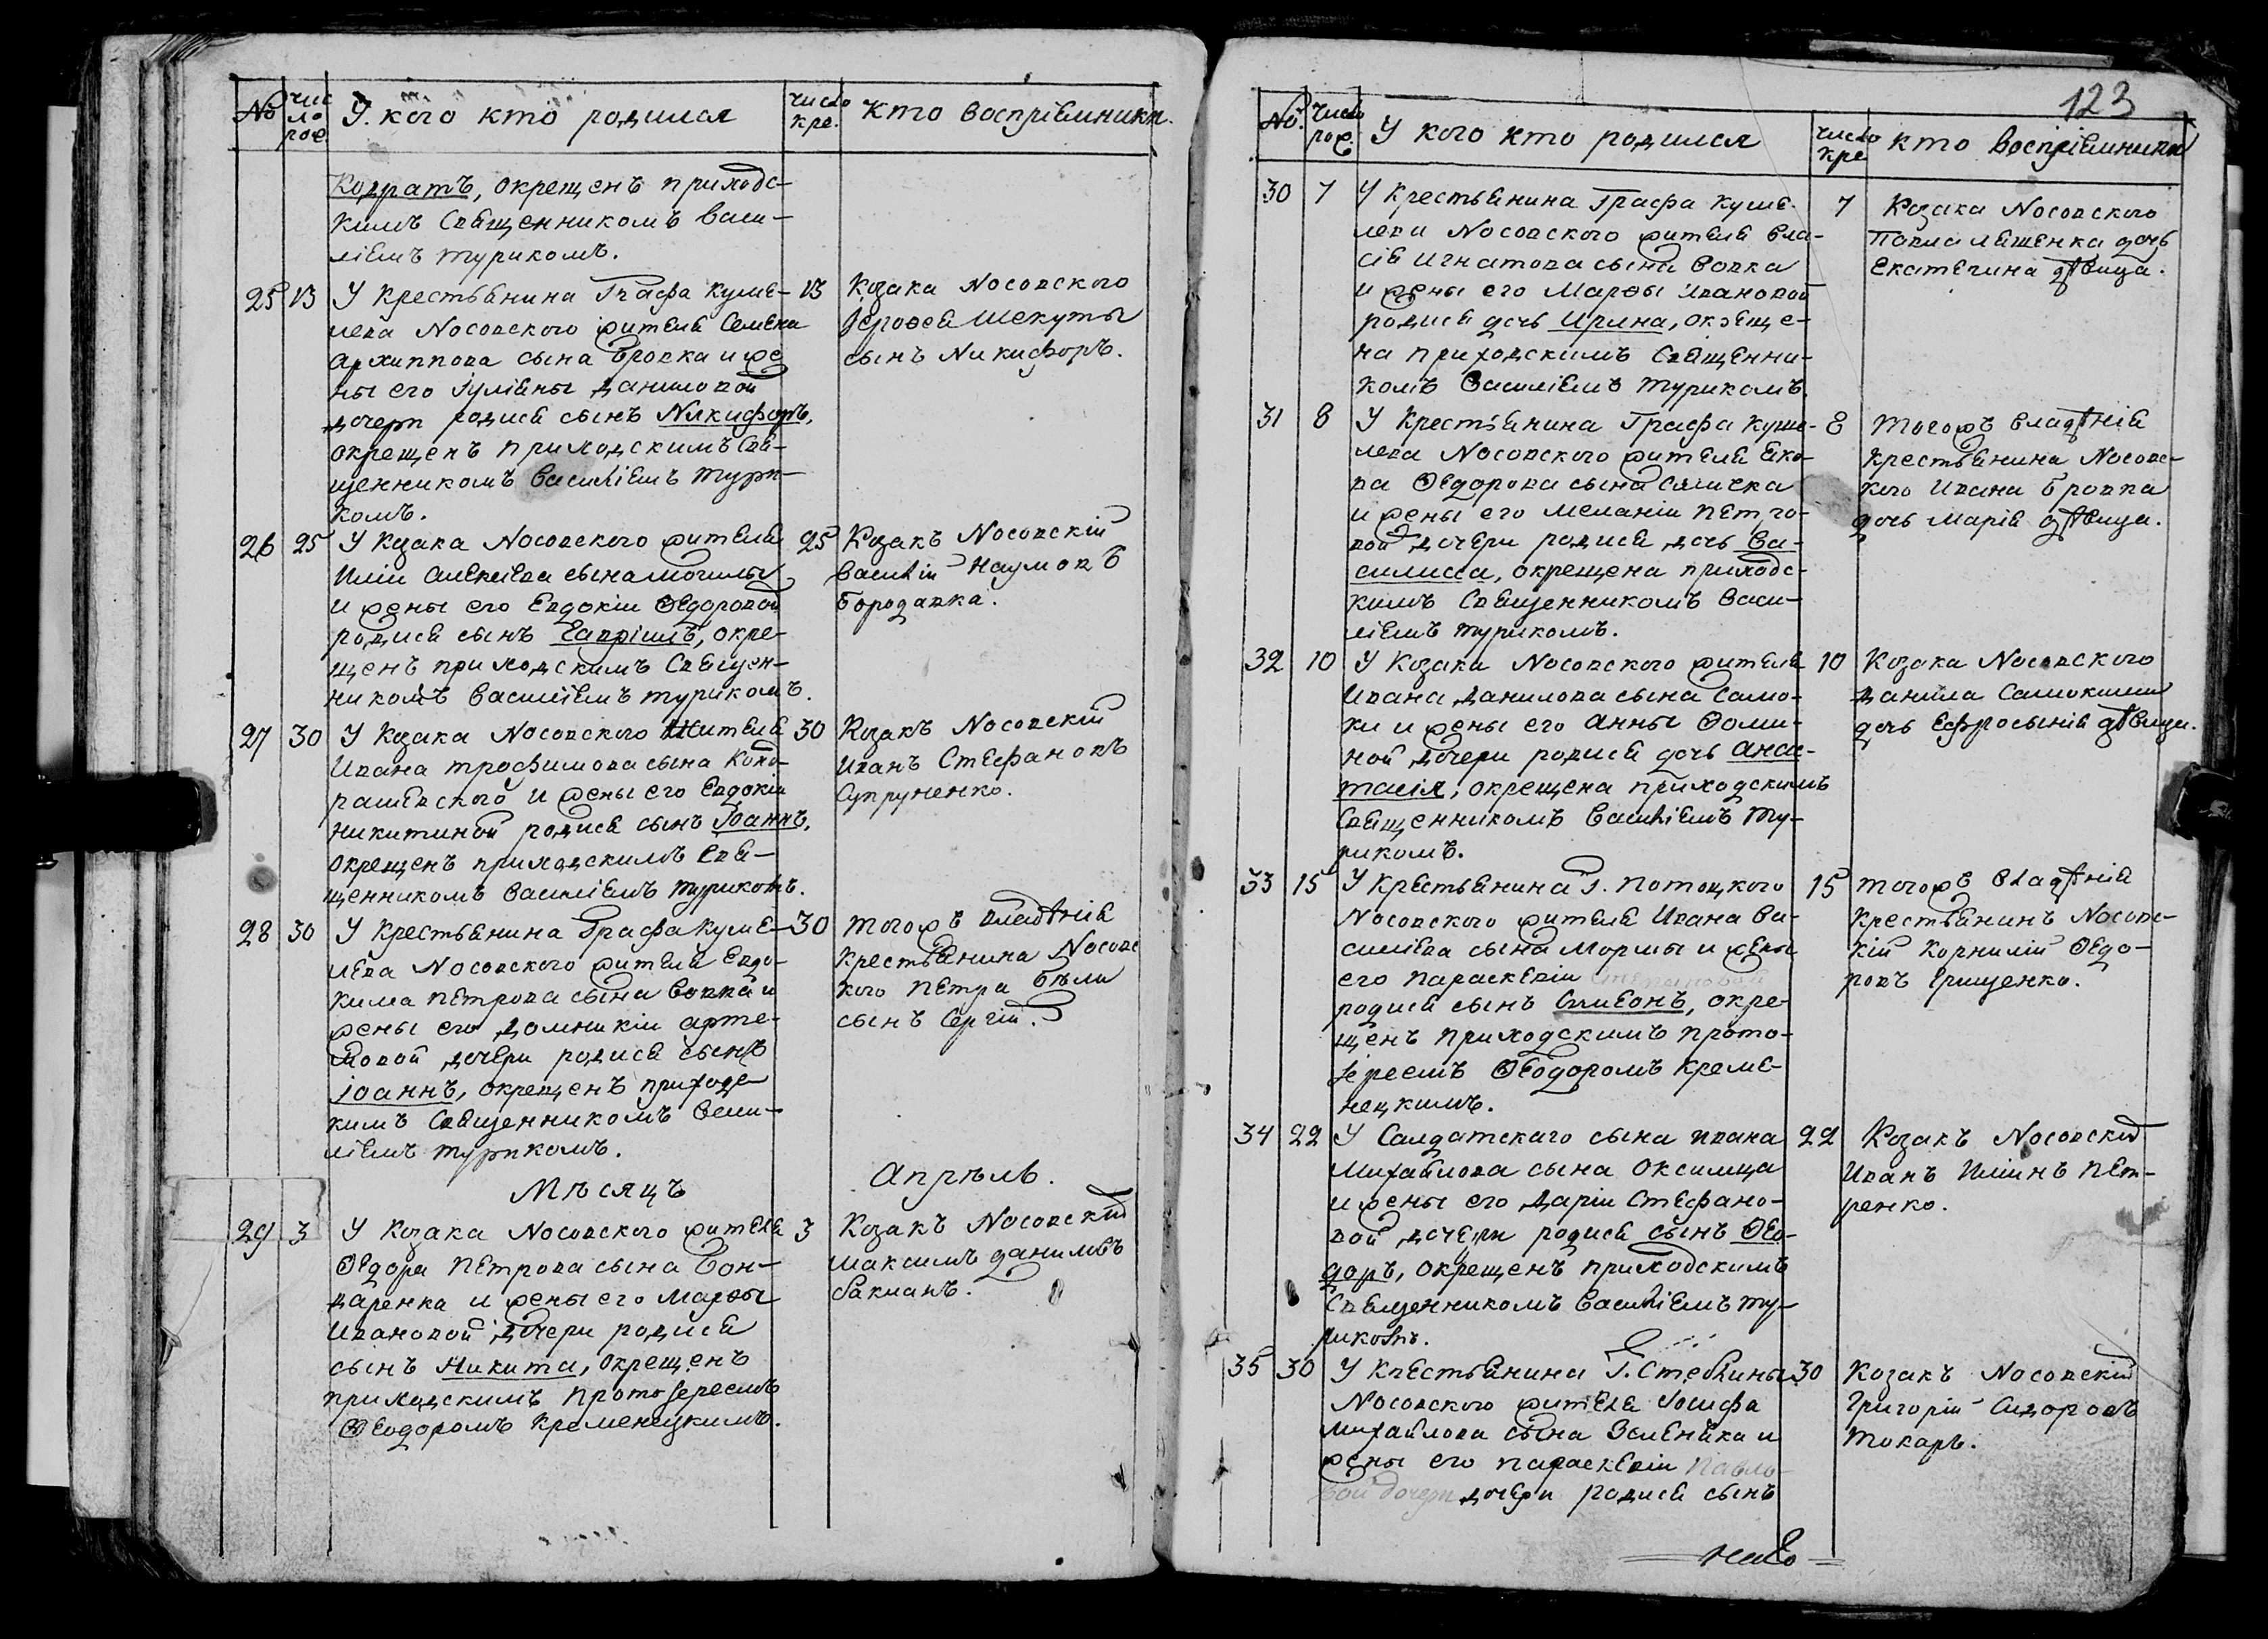 № число рож. У кого кто родился число кре. кто воспріемники.
Кодратъ, окрещенъ приходс-
кимъ Священникомъ Васи-
ліемъ Турикомъ.
25 13 У Крестьянина Графа Куше- 13
лева Носовского жителя Семена
Архиппова сына Бровка и же
ны его Іуліяны Даниловой
дочери родися сынъ Никифоръ,
окрещенъ приходскимъ Свя-
щенникомъ Василіемъ Тури-
комъ.
Козака Носовского
Іерофея Шекуты
сынъ Никифоръ.
26 25 У Козака Носовского жителя 25
Иліи Алексіева сына Могилы
и жены его Евдокіи Федоровой
родися сынъ Гавріилъ, окре-
щенъ приходскимъ Священ-
никомъ Василіемъ Турикомъ.
Козакъ Носовскій
Василій Наумовъ
Бородавка.
27 30 У Козака Носовского Жителя 30
Ивана Трофимова сына Кова-
рашевского и жены его Евдокіи
Никитиной родися сынъ Іоаннъ,
окрещенъ приходскимъ Свя-
щенникомъ Василіемъ Турикомъ.
Козакъ Носовскій
Иванъ Стефановъ
Супруненко.
28 30 У Крестьянина Графа Куше- 30
лева Носовского жителя Евдо-
кима Петрова сына Вовка и
жены его Домникіи Арте-
мовой дочери родися сынъ
Іоаннъ, окрещенъ приходс-
кимъ Священникомъ Васи-
ліемъ Турикомъ.
Тогожъ владѣнія
крестьянина Носовс
кого Петра Бѣлы
сынъ Сергій.
Мѣсяцъ Апрѣль.
29 3 У Козака Носовского жителя 3
Федора Петрова сына Бон-
даренка и жены его Марфы
Ивановой дочери родися
сынъ Никита, окрещенъ
приходскимъ Протоіереемъ
Феодоромъ Кременецкимъ.
Козакъ Носовскій
Максимъ Данилов
Бакланъ.
123
№. Число рож. У кого кто родился число кре кто воспріемники
30 7 У Крестьянина Графа Куше- 7
лева Носовского жителя Вла-
сія Игнатова сына Вовка
и жены его Марфы Ивановой
родися дочь Ирина, окреще-
на приходскимъ Священни-
комъ Василіемъ Турикомъ.
Козака Носовского
Павла Ляшенка дочь
Екатерина дѣвица.
31 8 У Крестьянина Графа Куше- 8
лева Носовского жителя Яко-
ва Федорова сына
и жены его Меланіи Петро-
вой дочери родися дочь Ва-
силисса, окрещена приходс-
кимъ Священникомъ Васи-
ліемъ Турикомъ.
Тогожъ владѣнія
крестьянина Носовс-
кого Ивана Бровка
дочь Марія дѣвица.
32 10 У Козака Носовского жителя 10
Ивана Данилова сына Само-
хи и жены его Анны Фоми-
ной дочери родися дочь Анас-
тасія, окрещена приходскимъ
Священникомъ Василіемъ Ту-
рикомъ.
Козака Носовского
Данила
дочь Ефросынія дѣвица.
33 15 У Крестьянина г. Потоцкого 15
Носовского жителя Ивана Ва-
силіева сына Мормы и жены
его Параскевіи Степановой
родися сынъ Симеонъ, окре-
щенъ приходскимъ Прото-
іереемъ Феодоромъ Креме-
нецкимъ.
Тогожъ Владѣнія
Крестьянинъ Носовс-
кій Корнилій Федо-
ровъ Грищенко.
34 22 У Салдатскаго сына Ивана 22
Михайлова сына Оксимца
и жены его Даріи Стефано-
вой дочери родися сынъ Фео-
доръ, окрещенъ приходскимъ
Священникомъ Василіемъ Ту-
рикомъ.
Козакъ Носовскій
Иванъ Илінъ Пет-
ренко.
35 30 У Крестьянина Г. Стеблины 30
Носовского жителя Іосифа
Михайлова сына Зеленька и
жены его Параскевіи Павло-
вой дочери дочери родися сынъ
Козакъ Носовскій
Григорій Сидоровъ
Токарь.